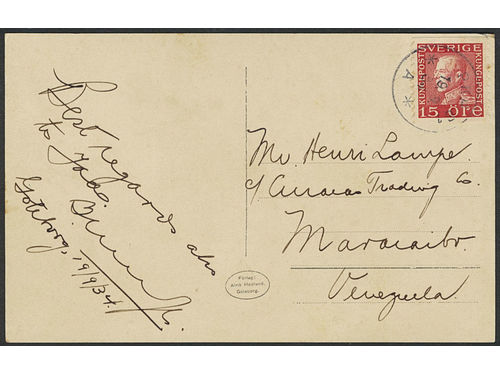 Best regards also
to Jobs
Göteborg, 19/9/34.
SVERIGE
KUNGL·POST
KUNGL·POST
15 ÖRE
19
A
Mr. Henri Lampe.
c/ Curacao Trading Co.
Maracaibo.
Venezuela.
Förlag:
Alrik Hedlund,
Göteborg.